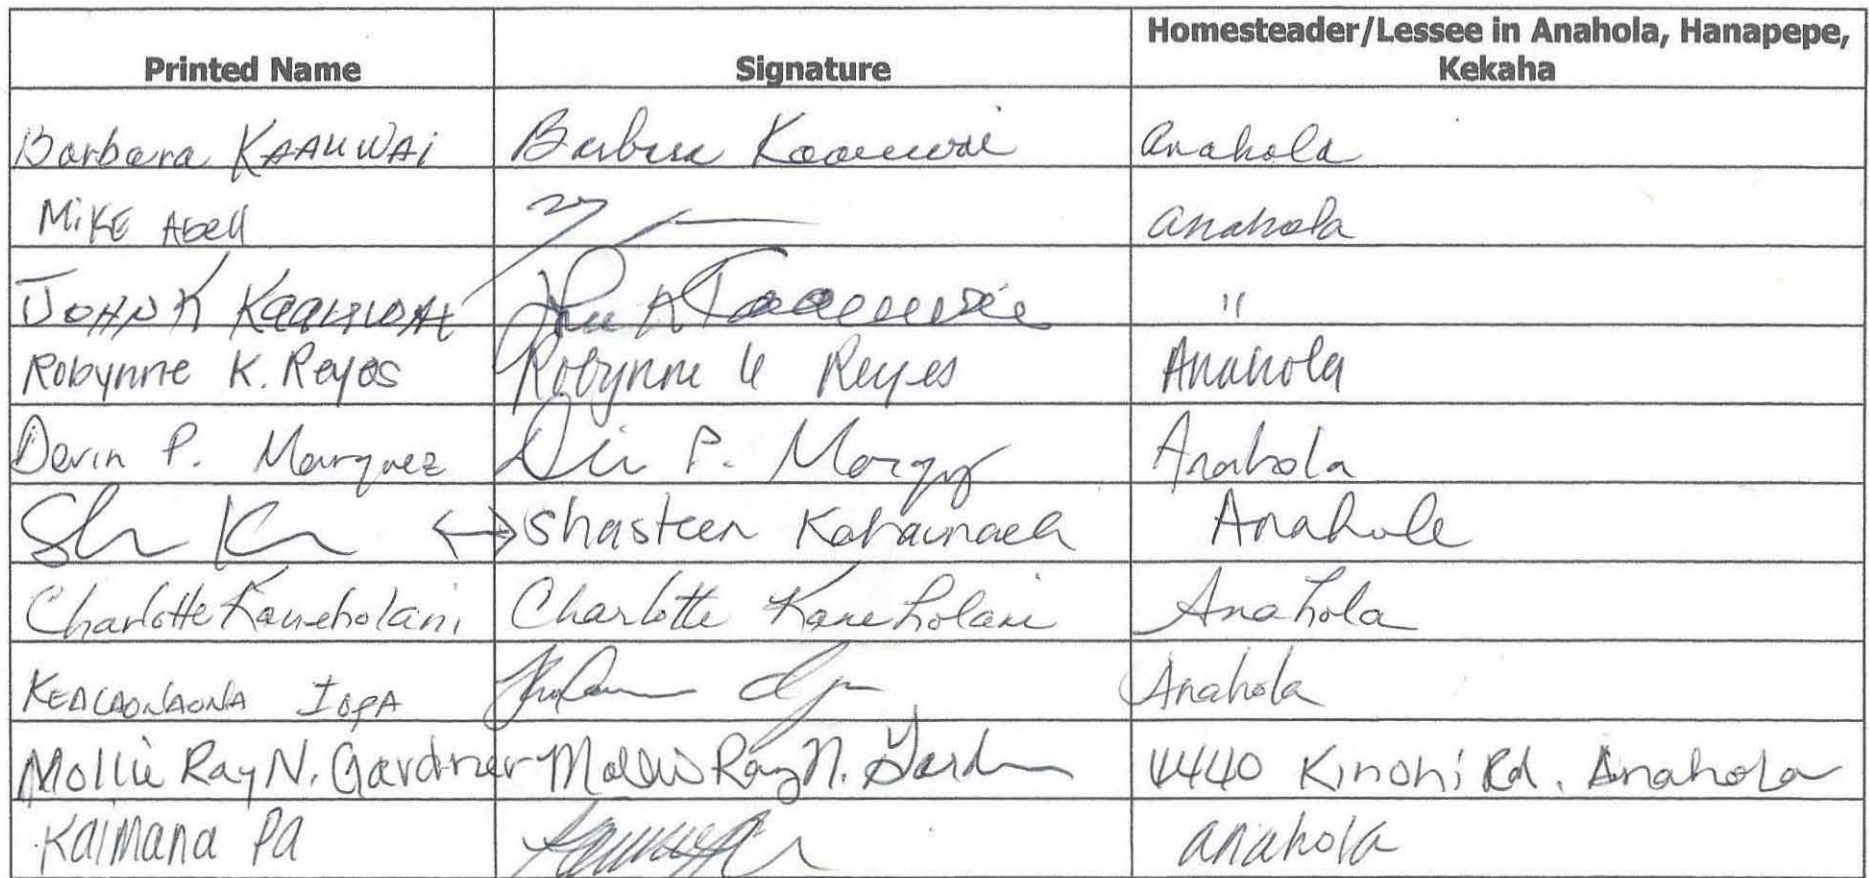 Printed Name Signature Homesteader/Lessee in Anahola, Hanapepe,
Kekaha
Barbara KAAUWAi Barbara Kaauwai Anahola
MiKE Abell anahola
JOHN K KAAUWAI John K Kaauwai "
Robynne K. Reyes Robynne K Reyes Anahola
Devin P. Marquez P. Anahola
<-> Shasteen Anahola
Charlotte Kaneholani Charlotte Kaneholani Anahola
KEALAONAONA IOPA Anahola
Mollie Ray N. Gardner Mollie Ray N. Gardner 4440 Kinohi Rd. Anahola
Kaimana Pa anahola